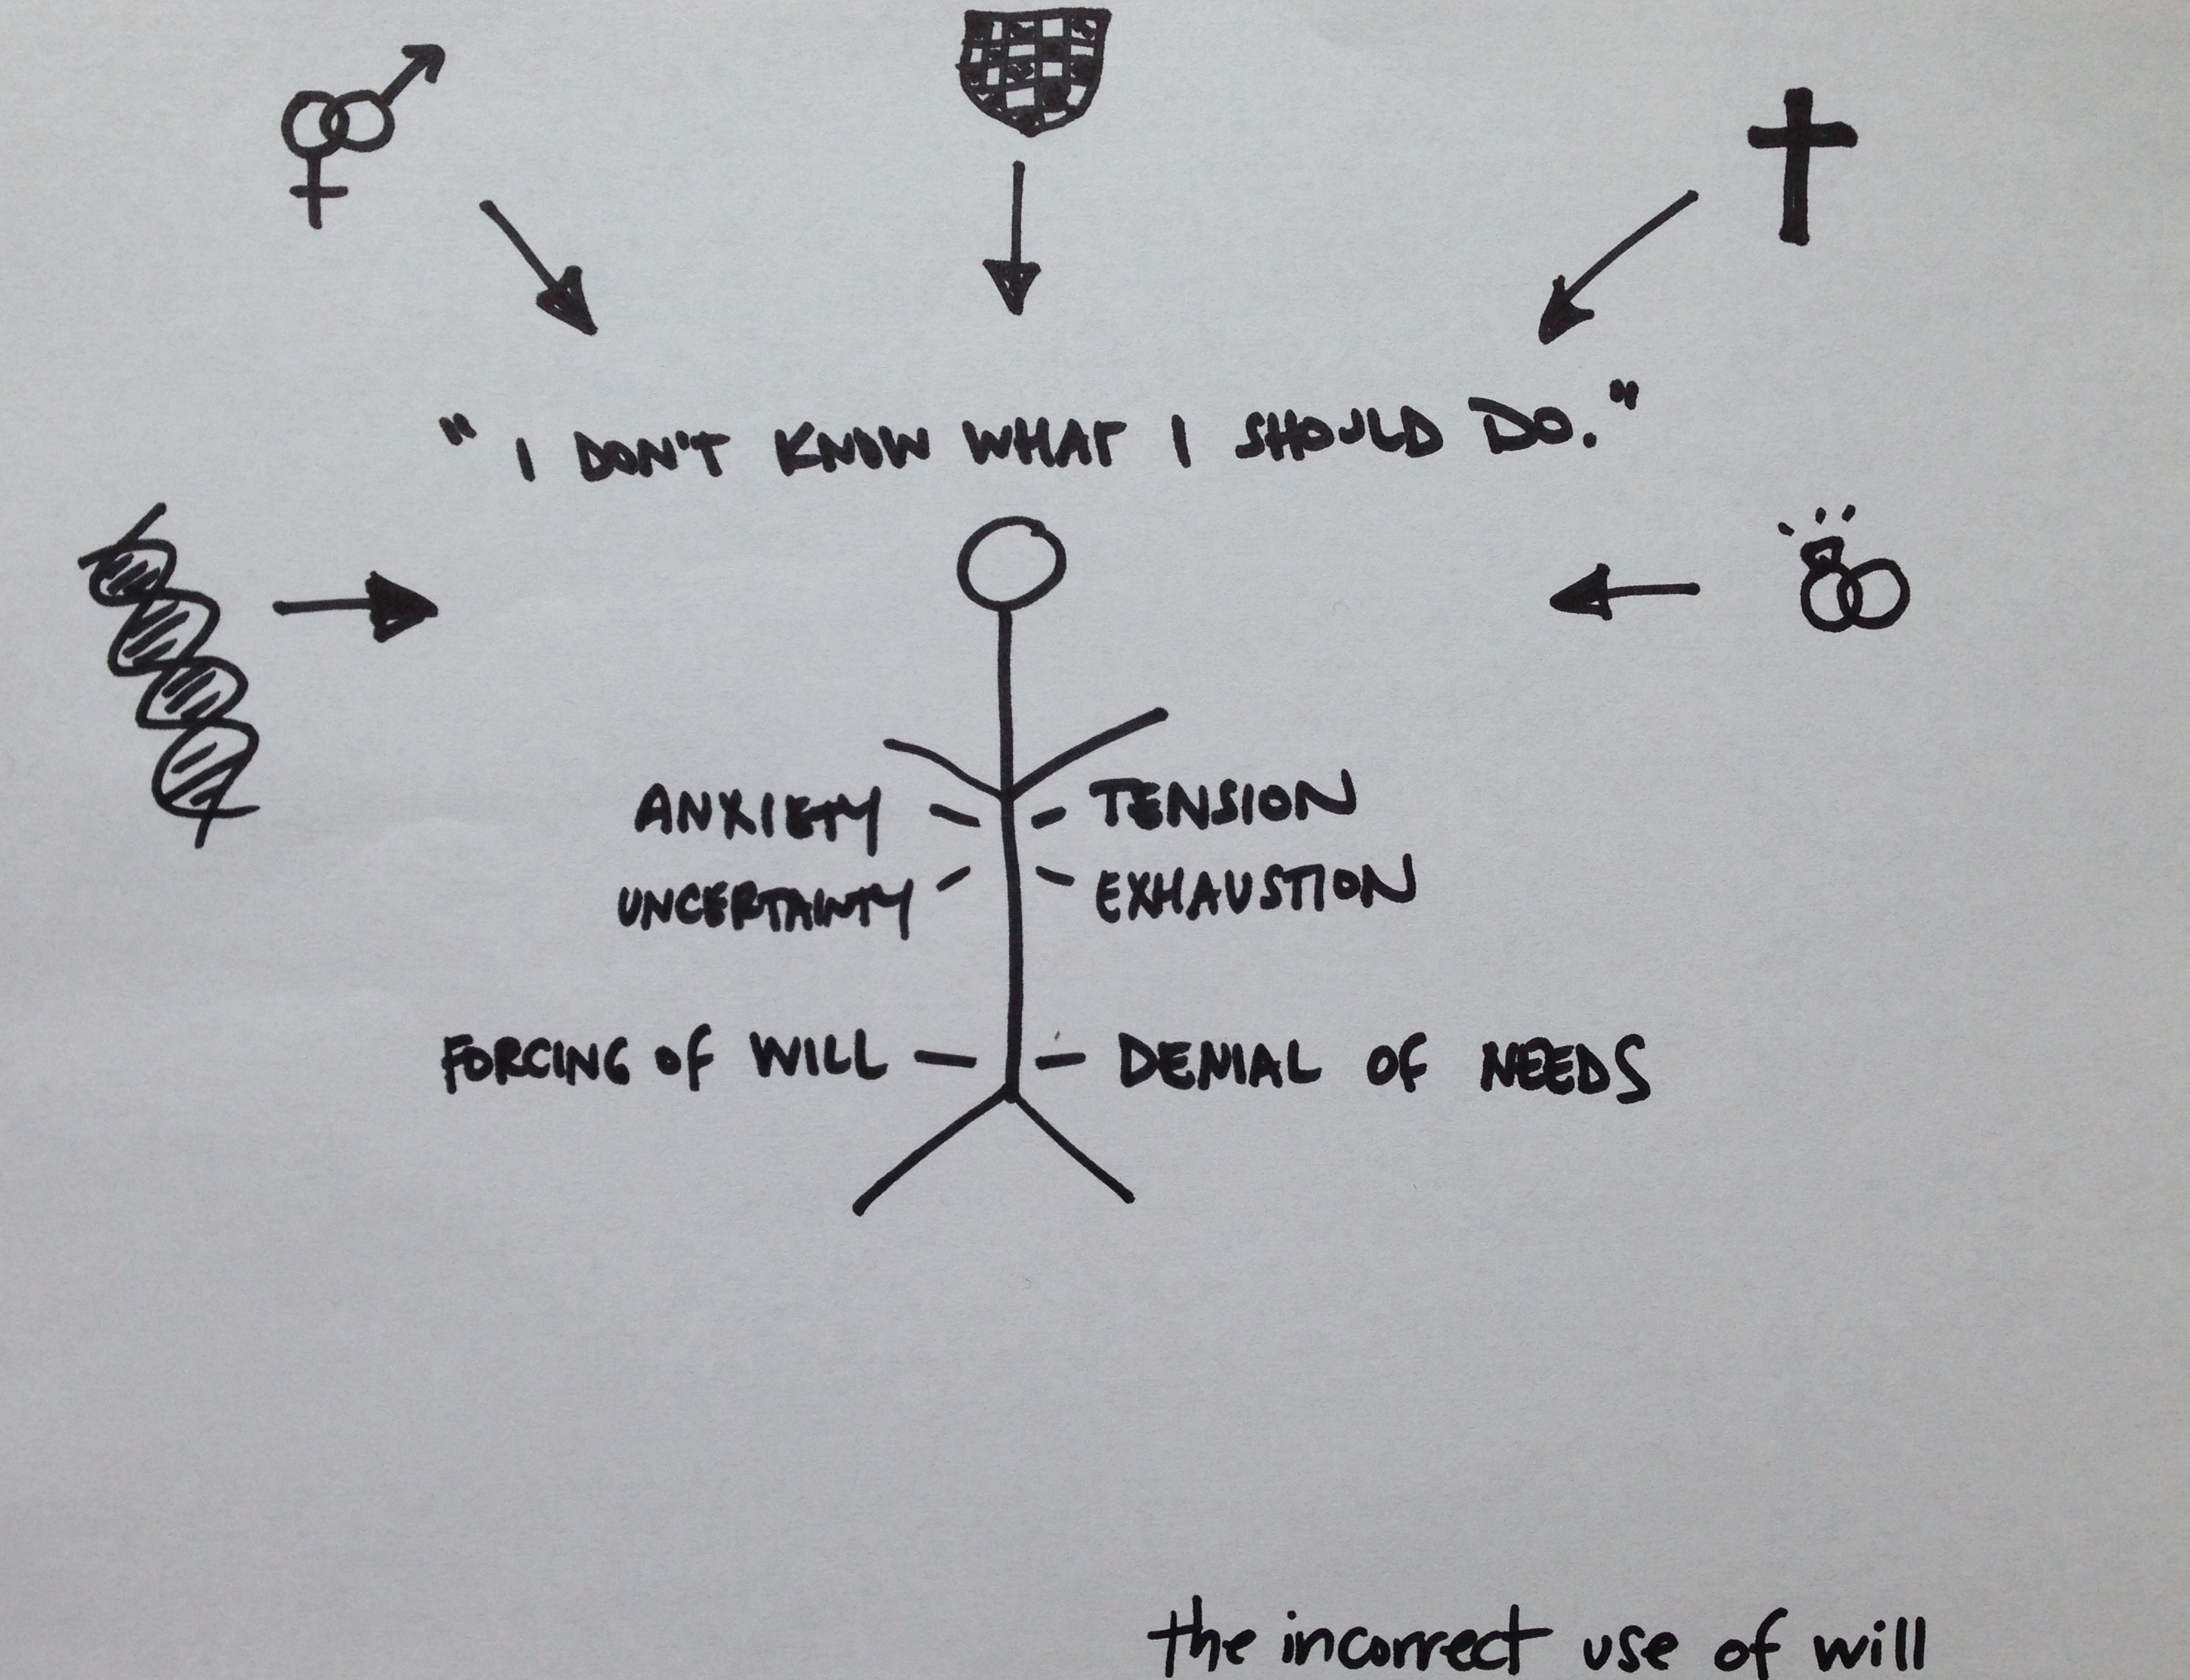 "I DON'T KNOW WHAT I SHOULD DO."
ANXIETY
TENSION
UNCERTAINTY
EXHAUSTION
FORCING OF WILL
DENIAL OF NEEDS
the incorrect use of will